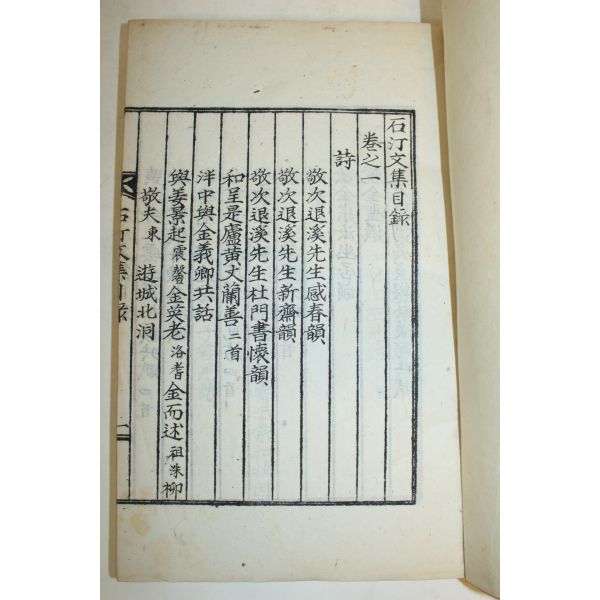 石汀文集目錄
卷之一
詩
敬次退溪先生感春韻
敬次退溪先生新齋韻
敬次退溪先生杜門書懷韻
和呈是廬黃丈蘭善二首
泮中與金義卿共話
與姜景起震馨金英老洛耆金而述祖洙柳
敬夫東遊城北洞
石汀文集目錄
一